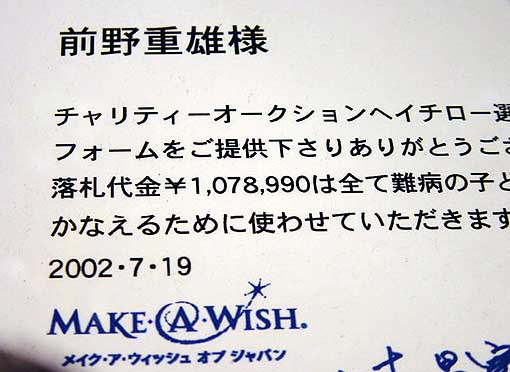 前野重雄様
チャリティーオークションへイチロー選
フォームをご提供下さりありがとうござ
落札代金¥1,078,990は全て難病の子と
かなえるために使わせていただきます
2002・7・19
MAKE・A・WISH.
メイク・ア・ウィッシュ オブ ジャパン